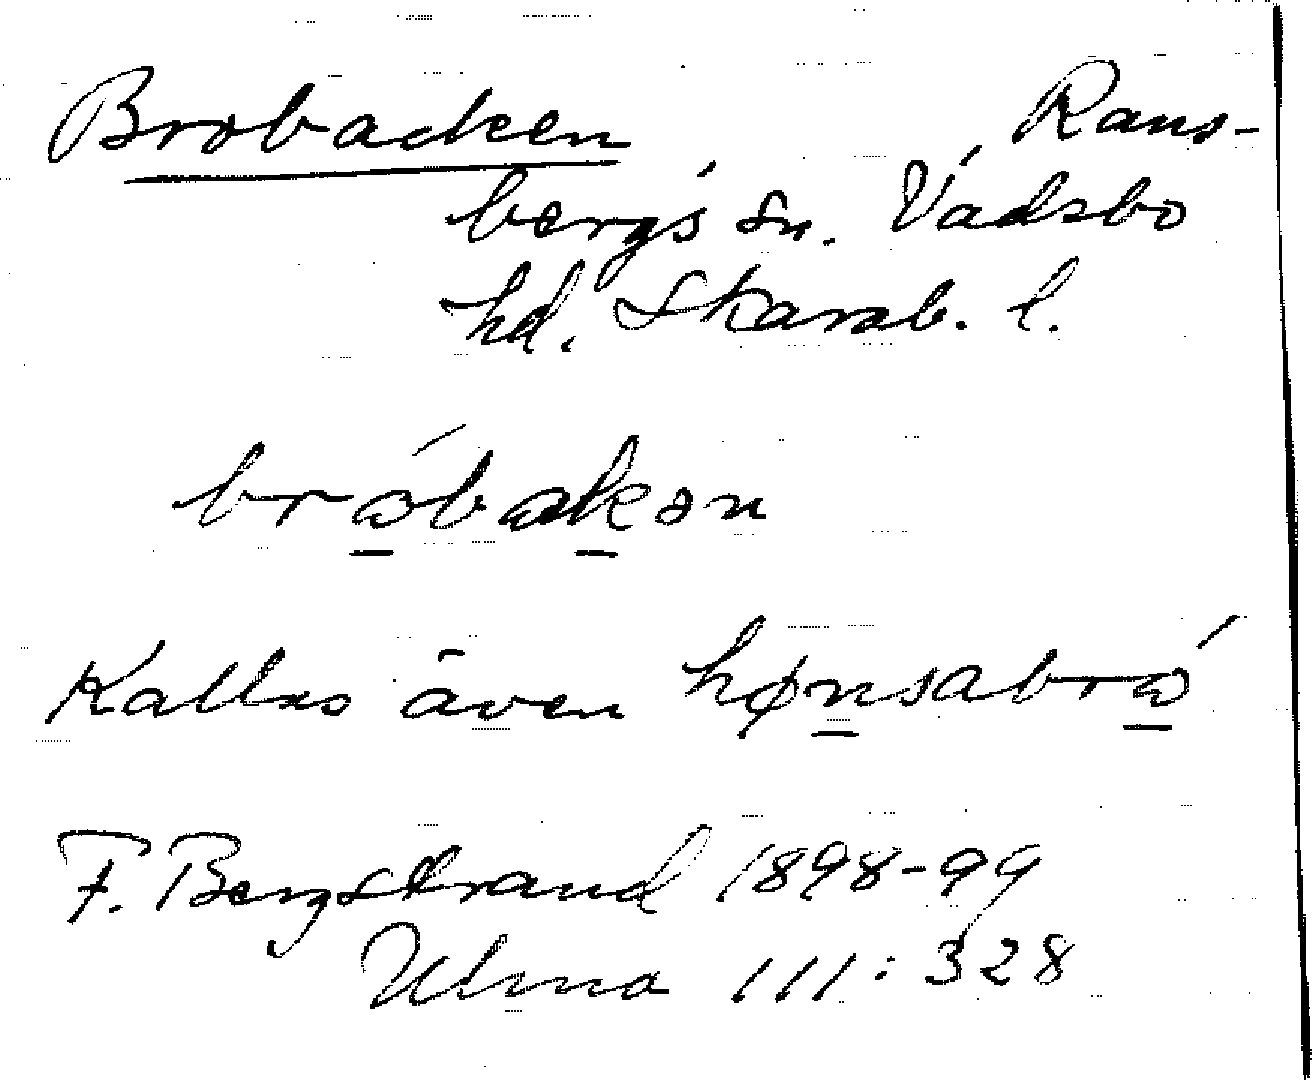 Brobacken Rans-
bergs sn. Vadsbo
hd. Skarab. l.
bróbakən
Kallas även hønsabró
F. Bergstrand 1898-99
Ulma 111:328